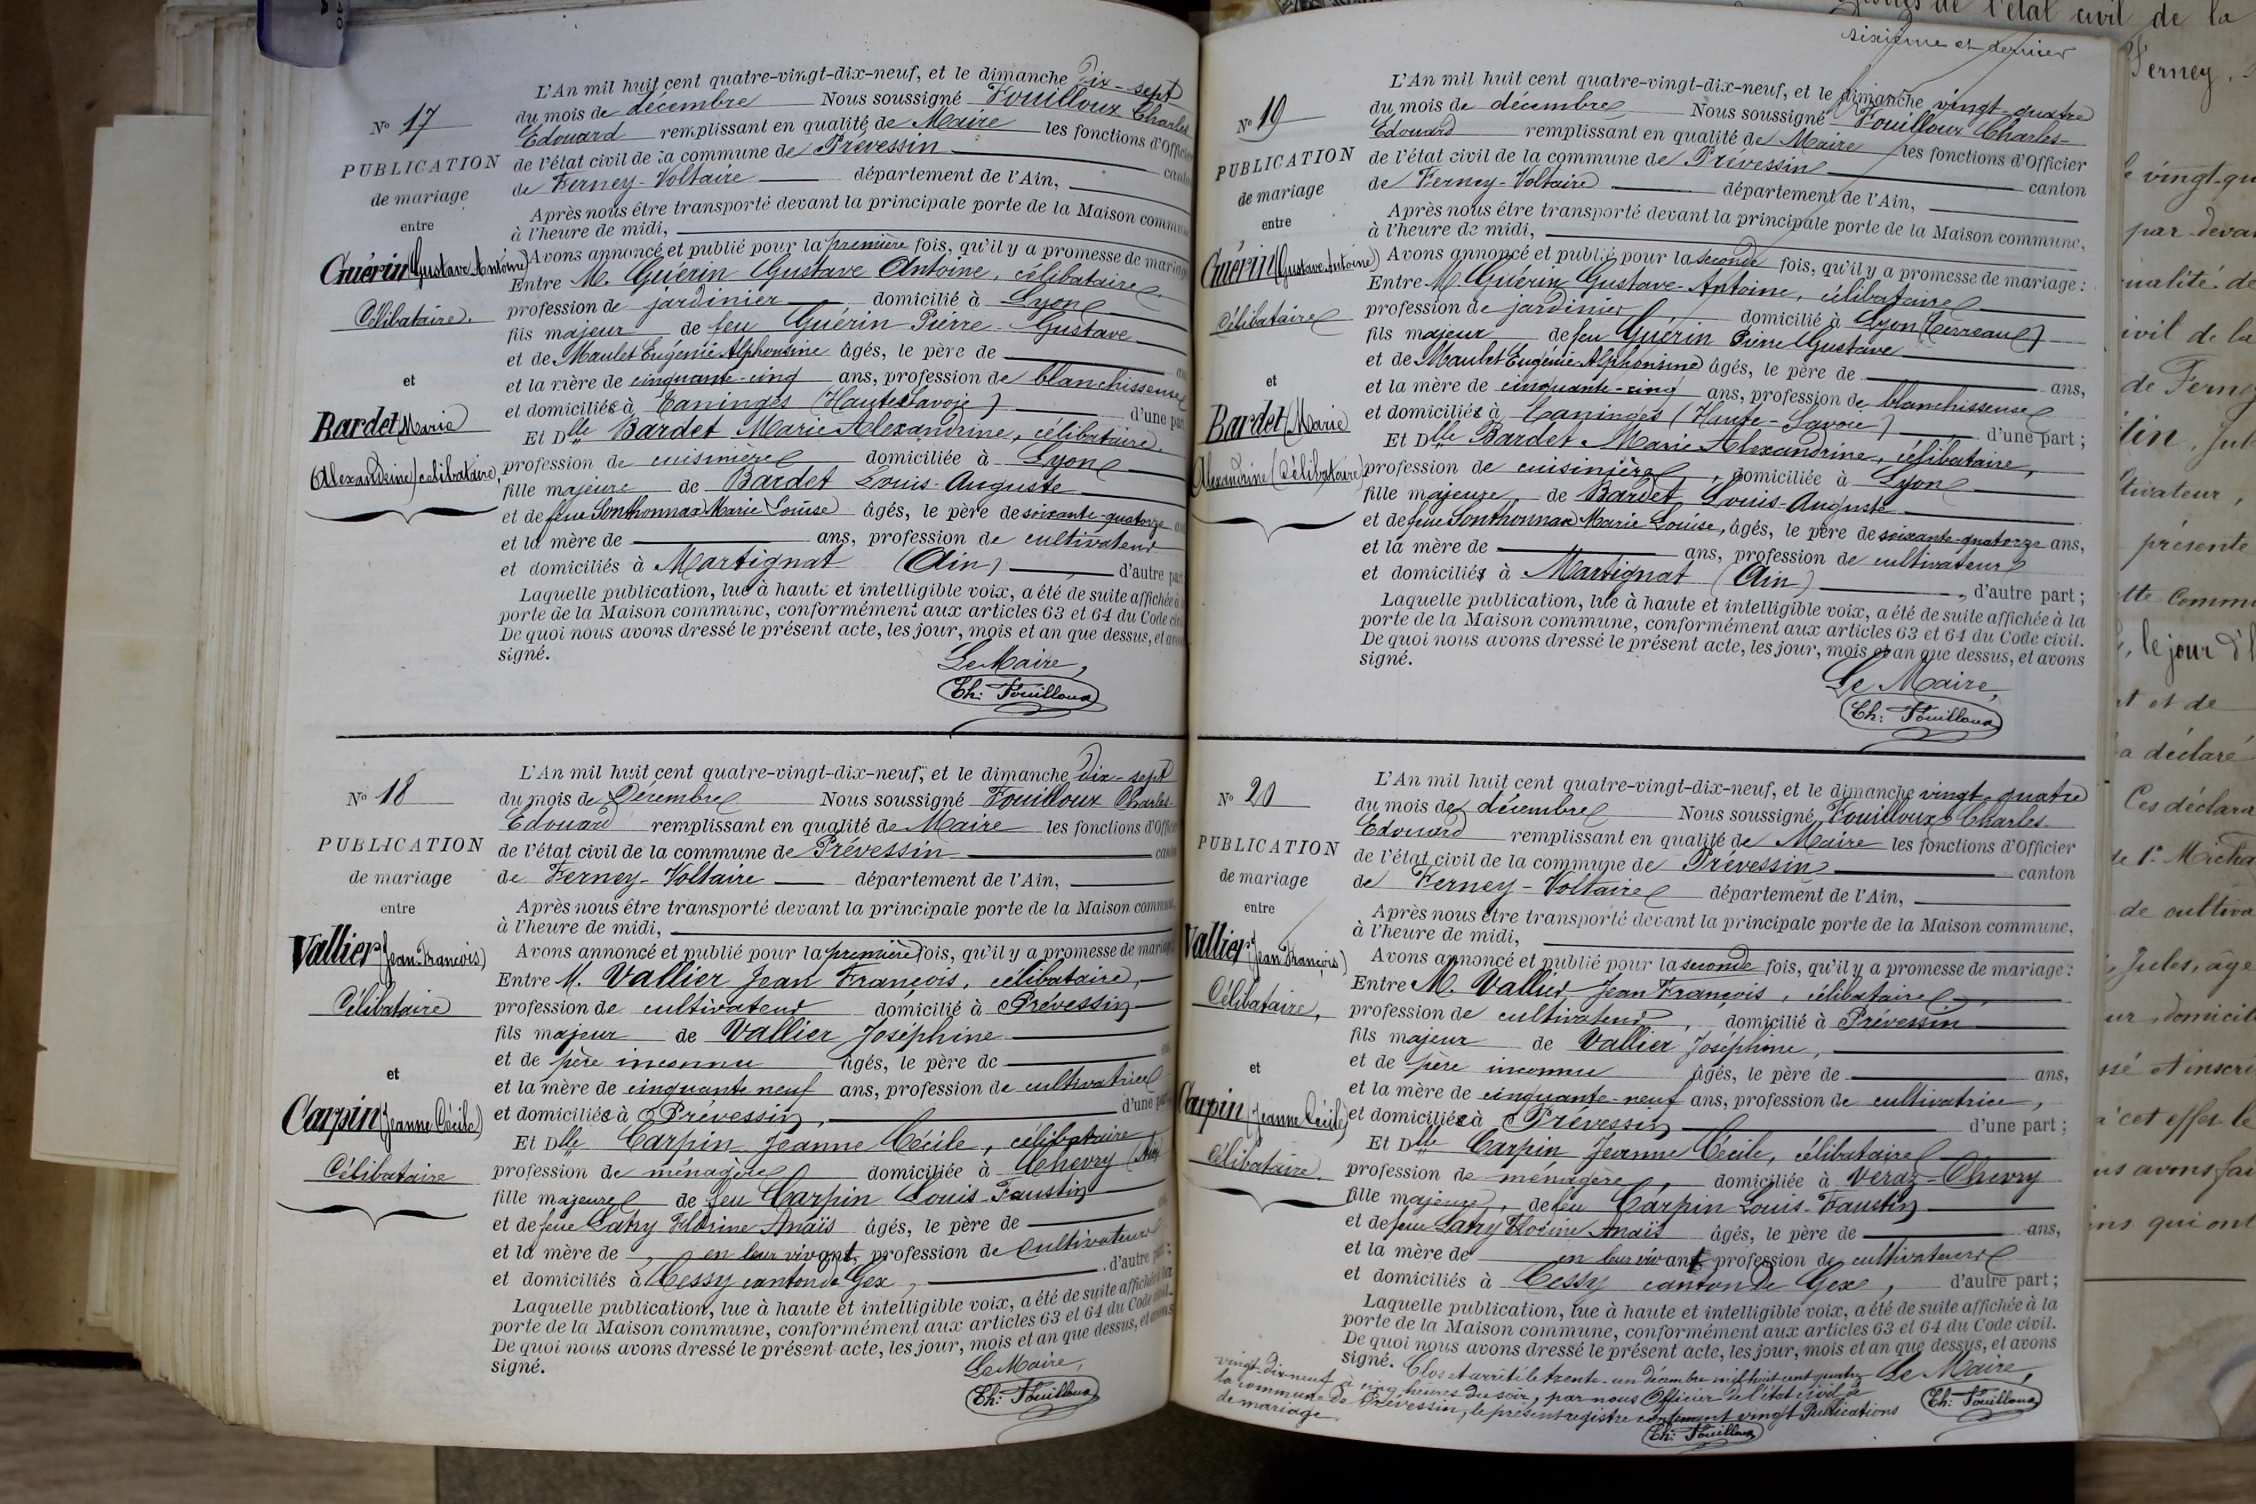 N° 17
PUBLICATION
de mariage
entre
Guérin (Gustave Antoine)
Célibataire.
et
Bardet (Marie
Alexandrine) célibataire,
L'An mil huit cent quatre-vingt-dix-neuf, et le dimanche dix-sept
du mois de décembre Nous soussigné Fouilloux Charles
Edouard remplissant en qualité de Maire les fonctions d'Officier
de l'état civil de la commune de Prévessin canton
de Ferney-Voltaire département de l'Ain,
Après nous être transporté devant la principale porte de la Maison commune
à l'heure de midi,
Avons annoncé et publié pour la première fois, qu'il y a promesse de mariage
Entre M. Guérin Gustave Antoine, célibataire
profession de jardinier domicilié à Lyon
fils majeur de feu Guérin Pierre-Gustave
et de Maulet Eugénie Alphonsine âgés, le père de ans
et la mère de cinquante-cinq ans, profession de blanchisseuse
et domiciliés à Taninges (Haute Savoie) d'une part
Et Dlle Bardet Marie Alexandrine, célibataire,
profession de cuisinière domiciliée à Lyon
fille majeure de Bardet Louis-Auguste
et de feue Sonthonnax Marie Louise âgés, le père de soixante-quatorze ans
et la mère de ans, profession de cultivateur
et domiciliés à Martignat (Ain) d'autre part
Laquelle publication, lue à haute et intelligible voix, a été de suite affichée à la
porte de la Maison commune, conformément aux articles 63 et 64 du Code civil
De quoi nous avons dressé le présent acte, les jour, mois et an que dessus, et avons
signé.
Le Maire,
Ch: Fouilloux
N° 18
PUBLICATION
de mariage
entre
Vallier (Jean-François)
Célibataire
et
Carpin (Jeanne Cécile)
Célibataire
L'An mil huit cent quatre-vingt-dix-neuf, et le dimanche dix-sept
du mois de Décembre Nous soussigné Fouilloux Charles-
Edouard remplissant en qualité de Maire les fonctions d'Officier
de l'état civil de la commune de Prévessin canton
de Ferney-Voltaire département de l'Ain,
Après nous être transporté devant la principale porte de la Maison commune,
à l'heure de midi,
Avons annoncé et publié pour la première fois, qu'il y a promesse de mariage
Entre M. Vallier Jean François, célibataire,
profession de cultivateur domicilié à Prévessin
fils majeur de Vallier Joséphine
et de père inconnu âgés, le père de ans
et la mère de cinquante neuf ans, profession de cultivatrice
et domiciliés à Prévessin, d'une part
Et Dlle Carpin Jeanne Cécile, célibataire,
profession de ménagère domiciliée à Chevry (Ain)
fille majeure de feu Carpin Louis Faustin
et de feue Latry Florine Anaïs âgés, le père de ans
et la mère de en leur vivant, profession de cultivateurs
et domiciliés à Cessy canton de Gex, d'autre part;
Laquelle publication, lue à haute et intelligible voix, a été de suite affichée à la
porte de la Maison commune, conformément aux articles 63 et 64 du Code civil.
De quoi nous avons dressé le présent acte, les jour, mois et an que dessus, et avons
signé.
Le Maire,
Ch: Fouilloux
sixième et dernier
N° 19
PUBLICATION
de mariage
entre
Guérin (Gustave Antoine)
Célibataire
et
Bardet (Marie
Alexandrine (Célibataire)
L'An mil huit cent quatre-vingt-dix-neuf, et le dimanche vingt-quatre
du mois de décembre Nous soussigné Fouilloux Charles-
Edouard remplissant en qualité de Maire les fonctions d'Officier
de l'état civil de la commune de Prévessin canton
de Ferney-Voltaire département de l'Ain,
Après nous être transporté devant la principale porte de la Maison commune,
à l'heure de midi,
Avons annoncé et publié pour la seconde fois, qu'il y a promesse de mariage:
Entre M Guérin Gustave-Antoine, célibataire
profession de jardinier domicilié à Lyon (Terreaux)
fils majeur de feu Guérin Pierre Gustave
et de Maulet Eugénie Alphonsine âgés, le père de ans,
et la mère de cinquante-cinq ans, profession de blanchisseuse
et domiciliés à Taninges (Haute-Savoie) d'une part;
Et Dlle Bardet Marie Alexandrine, célibataire,
profession de cuisinière, domiciliée à Lyon
fille majeure de Bardet Louis-Auguste
et de feue Sonthonnax Marie Louise, âgés, le père de soixante-quatorze ans,
et la mère de ans, profession de cultivateur
et domiciliés à Martignat (Ain), d'autre part;
Laquelle publication, lue à haute et intelligible voix, a été de suite affichée à la
porte de la Maison commune, conformément aux articles 63 et 64 du Code civil.
De quoi nous avons dressé le présent acte, les jour, mois et an que dessus, et avons
signé.
Le Maire,
Ch: Fouilloux
N° 20
PUBLICATION
de mariage
entre
Vallier (Jean François)
Célibataire,
et
Carpin (Jeanne Cécile)
Célibataire.
L'An mil huit cent quatre-vingt-dix-neuf, et le dimanche vingt-quatre
du mois de décembre Nous soussigné Fouilloux Charles-
Edouard remplissant en qualité de Maire les fonctions d'Officier
de l'état civil de la commune de Prévessin canton
de Ferney-Voltaire département de l'Ain,
Après nous être transporté devant la principale porte de la Maison commune,
à l'heure de midi,
Avons annoncé et publié pour la seconde fois, qu'il y a promesse de mariage:
Entre M. Vallier Jean François, célibataire
profession de cultivateur, domicilié à Prévessin
fils majeur de Vallier Joséphine,
et de père inconnu âgés, le père de ans,
et la mère de cinquante-neuf ans, profession de cultivatrice,
et domiciliés à Prévessin d'une part;
Et Dlle Carpin Jeanne Cécile, célibataire
profession de ménagère, domiciliée à Veraz-Chevry
fille majeure, de feu Carpin Louis-Faustin
et de feue Latry Florine Anaïs âgés, le père de ans,
et la mère de en leur vivant profession de cultivateurs
et domiciliés à Cessy canton de Gex, d'autre part;
Laquelle publication, lue à haute et intelligible voix, a été de suite affichée à la
porte de la Maison commune, conformément aux articles 63 et 64 du Code civil.
De quoi nous avons dressé le présent acte, les jour, mois et an que dessus, et avons
signé. Clos et arrêté le trente-un décembre mil huit cent quatre Le Maire,
vingt-dix neuf à cinq heures du soir, par nous Officier de l'état civil de
la commune de Prévessin, le présent registre contenant vingt Publications
de mariage
Ch: Fouilloux
Ch: Fouilloux
de l'état civil de la
Ferney,
le vingt-qu
par deva
ualité de
ivil de la
de Ferney
tin, Jul
tivateur,
présente
tte commu
, le jour d'h
t et de
a déclaré
Ces déclara
de 1° Micha
de cultiva
Jules, âgé
ur, domicili
ssé et inscri
à cet effet le
us avons fai
ins qui ont